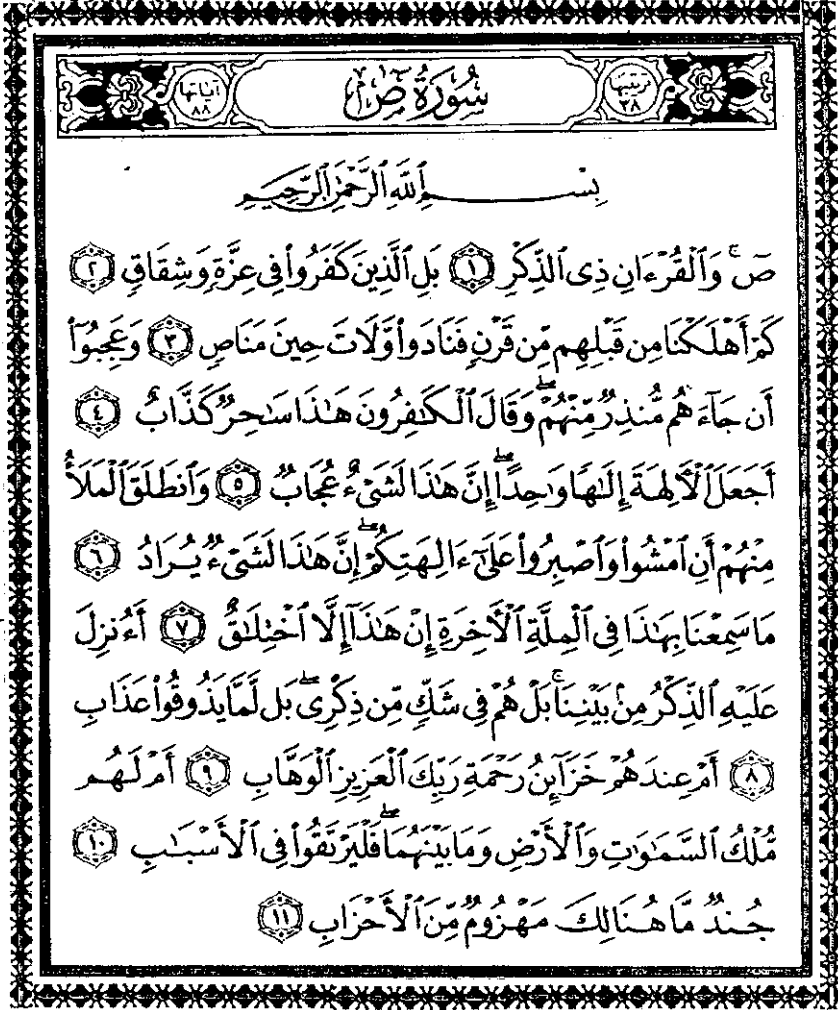 ترتيبها ٣٨ سُورَةُ صٓ آياتها ٨٨
بِسْمِ ٱللَّهِ ٱلرَّحْمَٰنِ ٱلرَّحِيمِ
صٓ ۚ وَٱلْقُرْءَانِ ذِى ٱلذِّكْرِ ١ بَلِ ٱلَّذِينَ كَفَرُوا۟ فِى عِزَّةٍ وَشِقَاقٍ ٢
كَمْ أَهْلَكْنَا مِن قَبْلِهِم مِّن قَرْنٍ فَنَادَوا۟ وَّلَاتَ حِينَ مَنَاصٍ ٣ وَعَجِبُوٓا۟
أَن جَآءَهُم مُّنذِرٌ مِّنْهُمْ ۖ وَقَالَ ٱلْكَٰفِرُونَ هَٰذَا سَٰحِرٌ كَذَّابٌ ٤
أَجَعَلَ ٱلْأَلِهَةَ إِلَٰهًا وَٰحِدًا ۖ إِنَّ هَٰذَا لَشَىْءٌ عُجَابٌ ٥ وَٱنطَلَقَ ٱلْمَلَأُ
مِنْهُمْ أَنِ ٱمْشُوا۟ وَٱصْبِرُوا۟ عَلَىٰٓ ءَالِهَتِكُمْ ۖ إِنَّ هَٰذَا لَشَىْءٌ يُرَادُ ٦
مَا سَمِعْنَا بِهَٰذَا فِى ٱلْمِلَّةِ ٱلْأَخِرَةِ إِنْ هَٰذَآ إِلَّا ٱخْتِلَٰقٌ ٧ أَءُنزِلَ
عَلَيْهِ ٱلذِّكْرُ مِنۢ بَيْنِنَا ۚ بَلْ هُمْ فِى شَكٍّ مِّن ذِكْرِى ۖ بَل لَّمَّا يَذُوقُوا۟ عَذَابِ
٨ أَمْ عِندَهُمْ خَزَآئِنُ رَحْمَةِ رَبِّكَ ٱلْعَزِيزِ ٱلْوَهَّابِ ٩ أَمْ لَهُم
مُّلْكُ ٱلسَّمَٰوَٰتِ وَٱلْأَرْضِ وَمَا بَيْنَهُمَا ۖ فَلْيَرْتَقُوا۟ فِى ٱلْأَسْبَٰبِ ١٠
جُندٌ مَّا هُنَالِكَ مَهْزُومٌ مِّنَ ٱلْأَحْزَابِ ١١